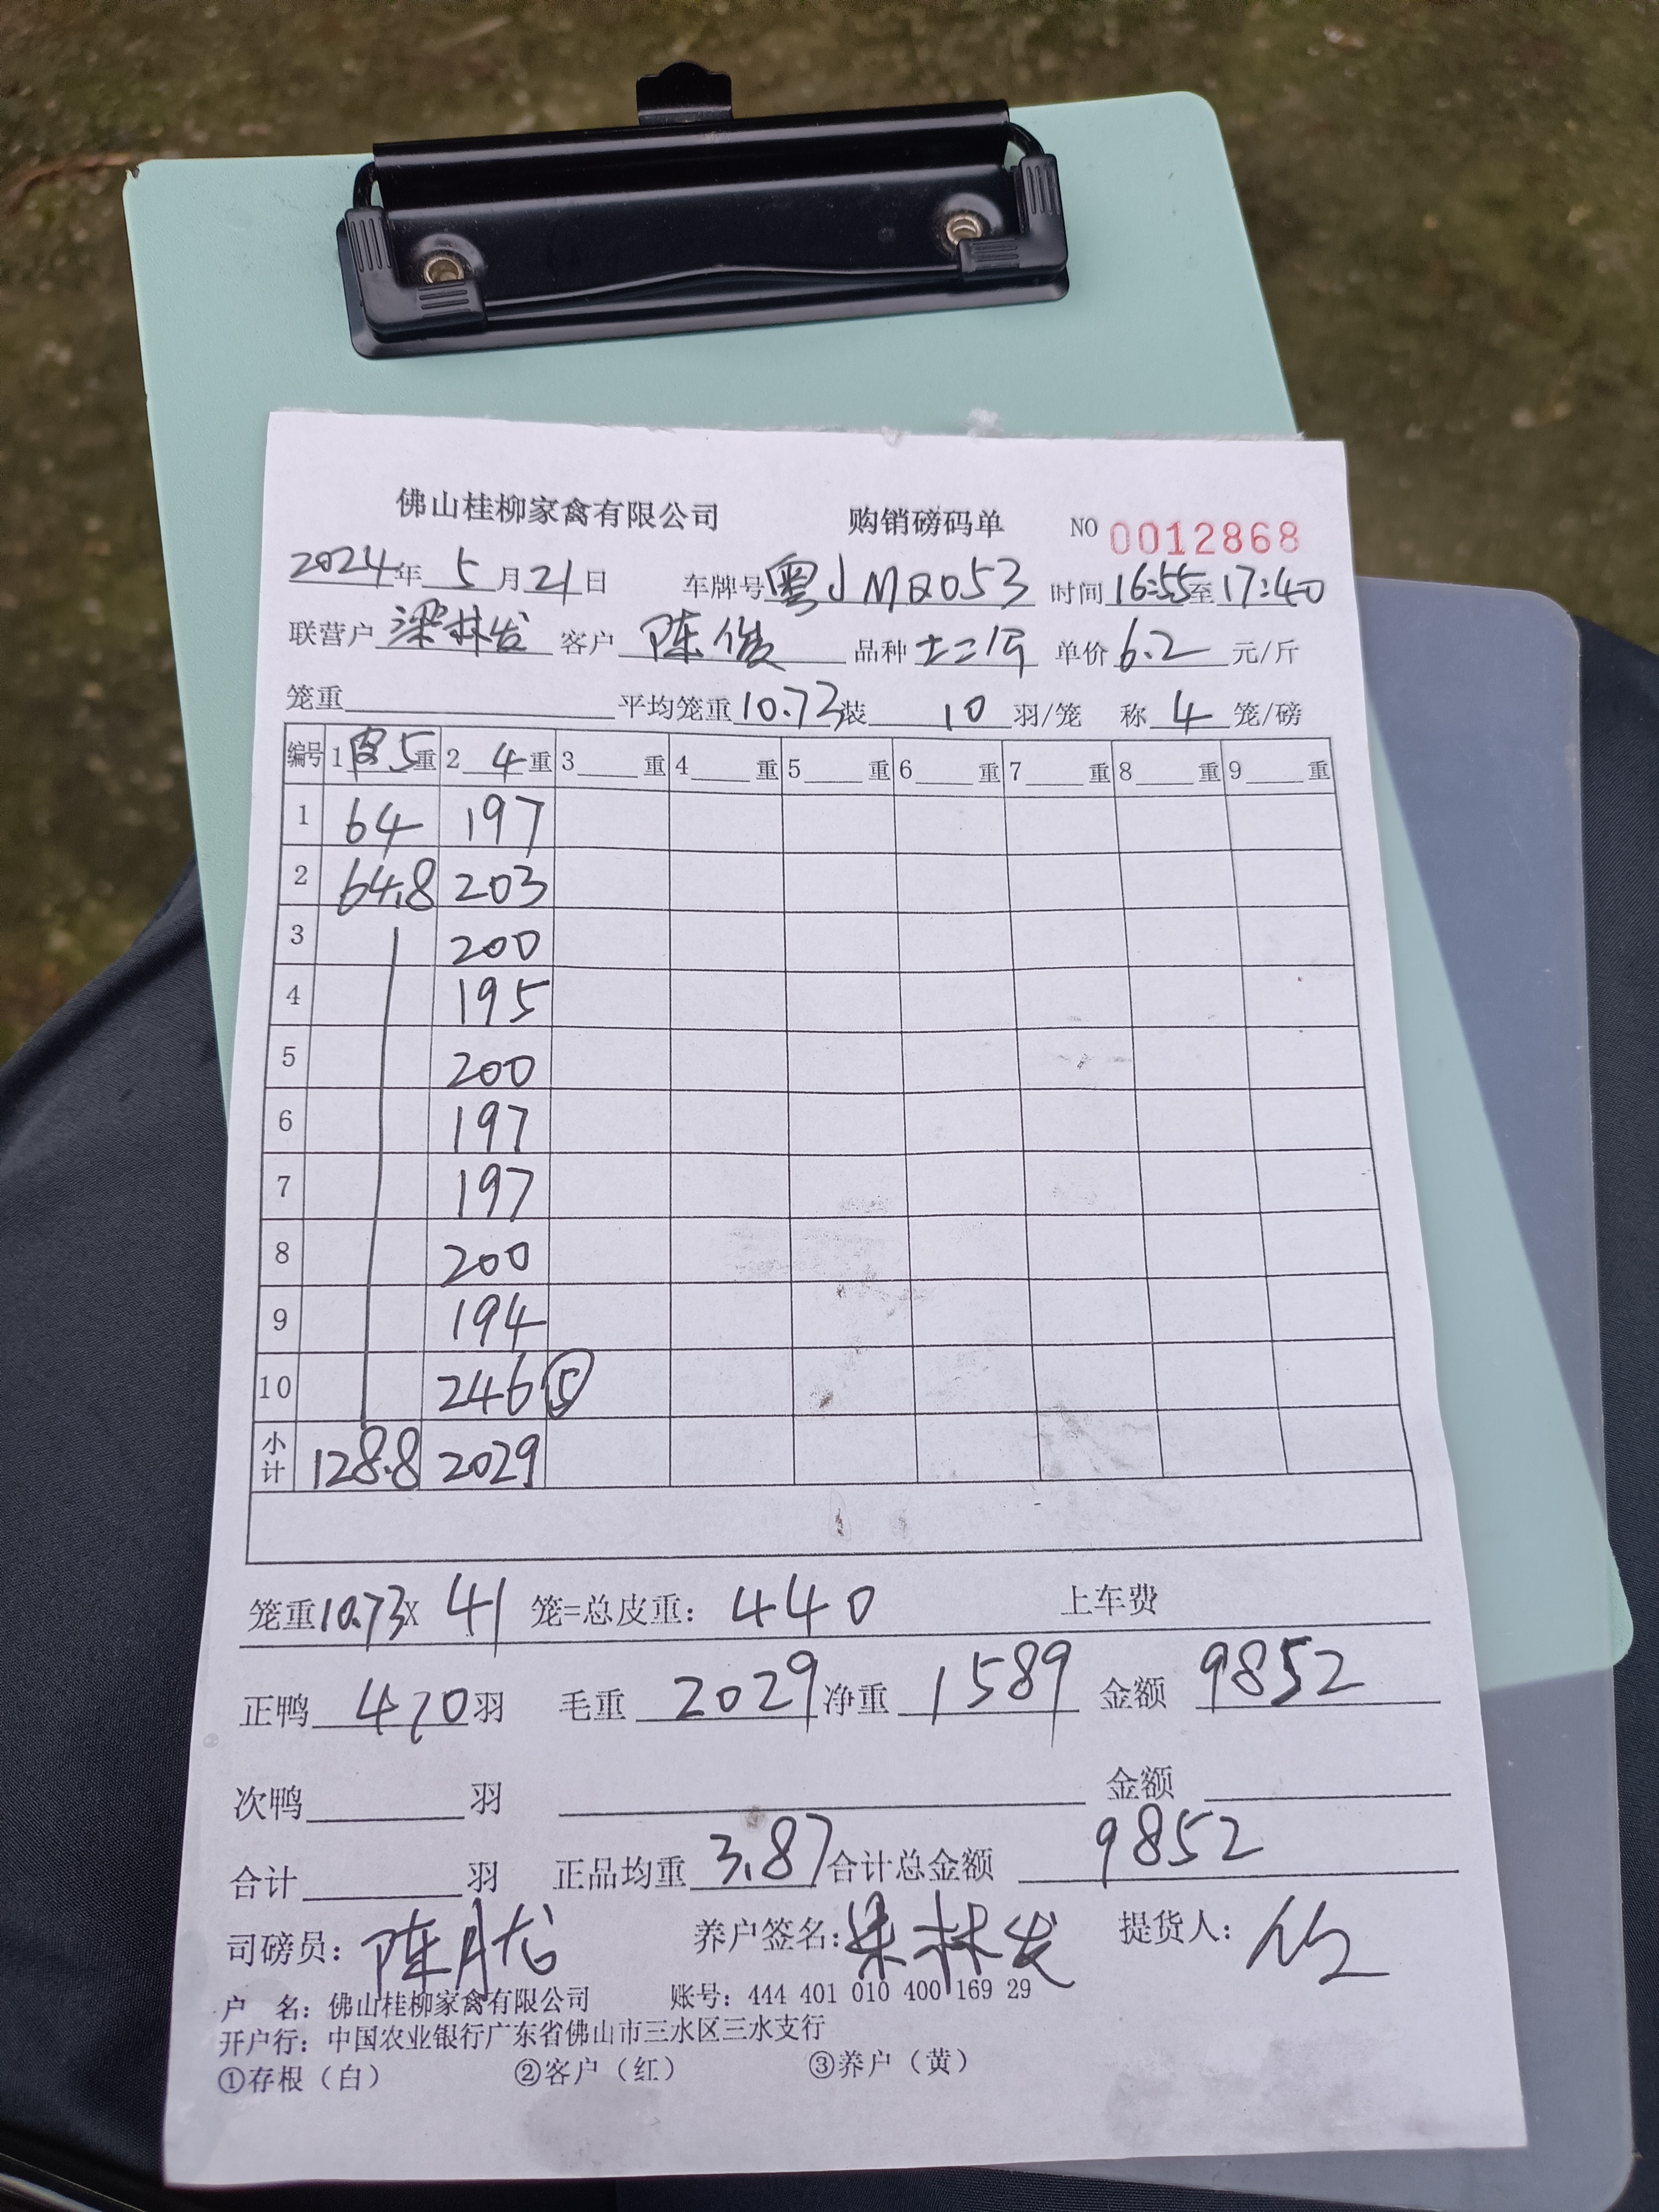 佛山桂柳家禽有限公司 购销磅码单 NO 0012868
2024年 5 月 21 日 车牌号 粤JMQ053 时间 16:55 至 17:40
联营户 梁林发 客户 陈俊 品种 单价 6.2 元/斤
笼重 平均笼重 10.73 装 10 羽/笼 称 4 笼/磅
编号 1 皮5 重 2 4 重 3 重 4 重 5 重 6 重 7 重 8 重 9 重
1 64 197
2 64.8 203
3 200
4 195
5 200
6 197
7 197
8 200
9 194
10 246 ⑤
小计 128.8 2029
笼重 10.73 X 41 笼=总皮重: 440 上车费
正鸭 410 羽 毛重 2029 净重 1589 金额 9852
次鸭 羽 金额
合计 羽 正品均重 3.87 合计总金额 9852
司磅员: 养户签名: 梁林发 提货人:
户 名: 佛山桂柳家禽有限公司 账号: 444 401 010 400 169 29
开户行: 中国农业银行广东省佛山市三水区三水支行
①存根（白） ②客户（红） ③养户（黄）